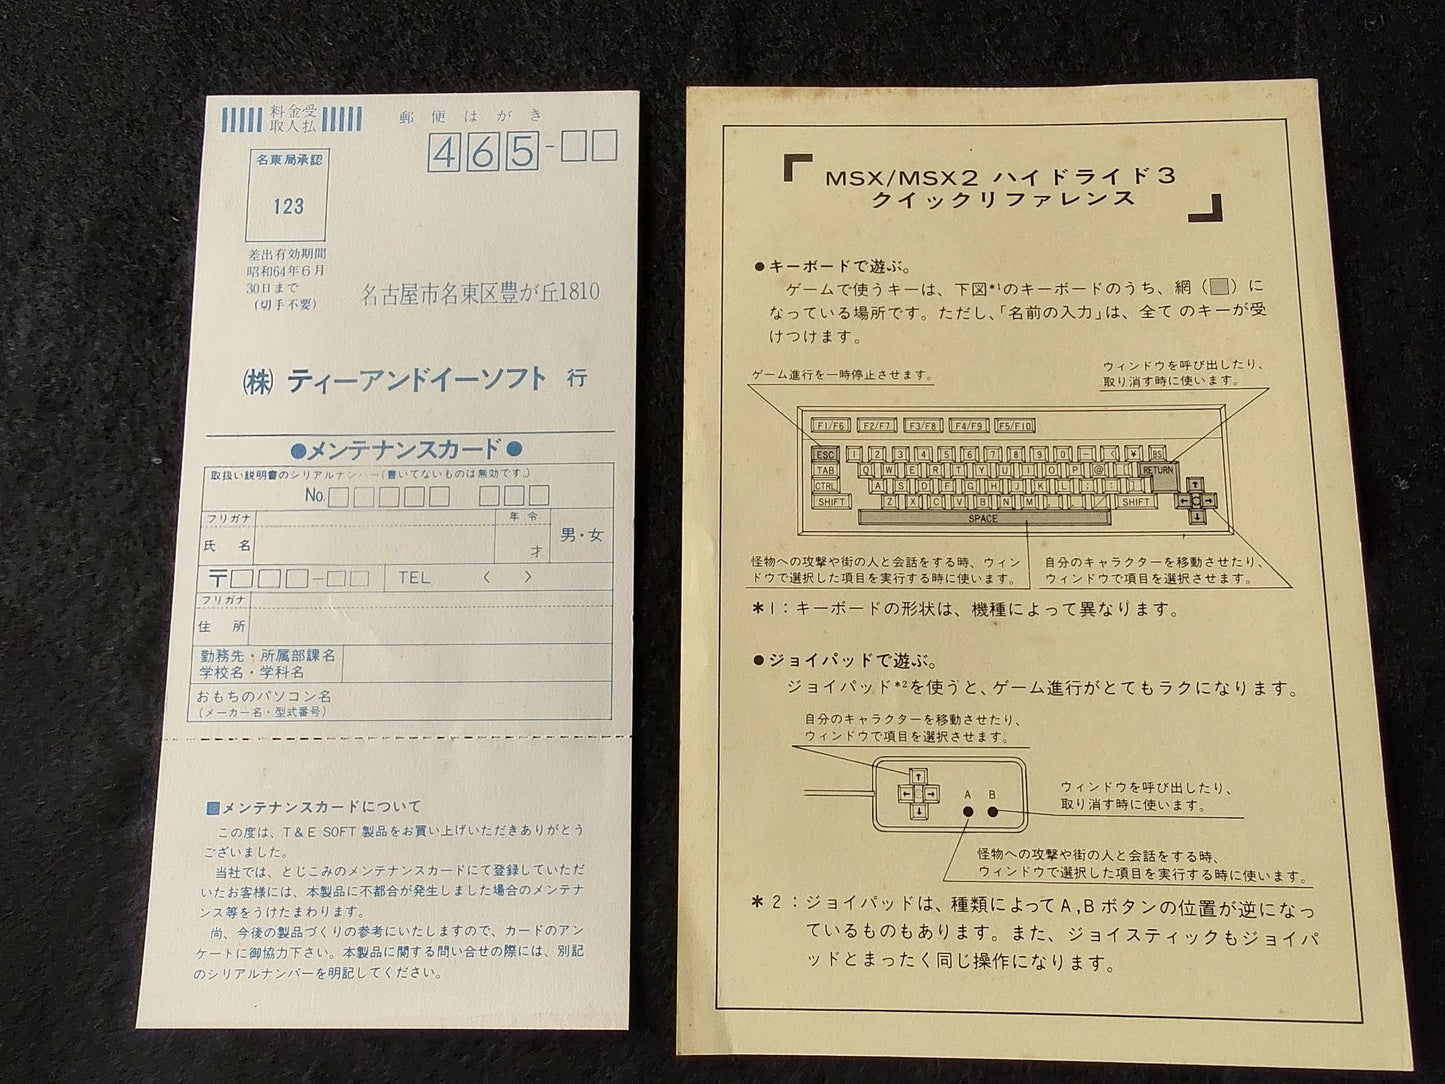 料金受
取人払
郵便はがき
465-
名東局承認
123
差出有効期間
昭和64年6月
30日まで
(切手不要)
名古屋市名東区豊が丘1810
㈱ ティーアンドイーソフト 行
●メンテナンスカード●
取扱い説明書のシリアルナンバー(書いてないものは無効です。)
No.
フリガナ
年令
氏名
才
男・女
〒 - TEL 〈 〉
フリガナ
住所
勤務先・所属部課名
学校名・学科名
おもちのパソコン名
(メーカー名・型式番号)
■メンテナンスカードについて
この度は、T&E SOFT 製品をお買い上げいただきありがとう
ございました。
当社では、とじこみのメンテナンスカードにて登録していただ
いたお客様には、本製品に不都合が発生しました場合のメンテナ
ンス等をうけたまわります。
尚、今後の製品づくりの参考にいたしますので、カードのアン
ケートに御協力下さい。本製品に関する問い合せの際には、別記
のシリアルナンバーを明記してください。
MSX/MSX2 ハイドライド3
クイックリファレンス
●キーボードで遊ぶ。
ゲームで使うキーは、下図*1のキーボードのうち、網( )に
なっている場所です。ただし、「名前の入力」は、全てのキーが受
けつけます。
ゲーム進行を一時停止させます。
ウィンドウを呼び出したり、
取り消す時に使います。
F1/F6 F2/F7 F3/F8 F4/F9 F5/F10
ESC 1 2 3 4 5 6 7 8 9 0 - ^ ¥ BS
TAB Q W E R T Y U I O P @ [ RETURN
CTRL A S D F G H J K L ; : ]
SHIFT Z X C V B N M , . / SHIFT
SPACE
↑
← →
↓
怪物への攻撃や街の人と会話をする時、ウィン
ドウで選択した項目を実行する時に使います。
自分のキャラクターを移動させたり、
ウィンドウで項目を選択させます。
*1:キーボードの形状は、機種によって異なります。
●ジョイパッドで遊ぶ。
ジョイパッド*2を使うと、ゲーム進行がとてもラクになります。
自分のキャラクターを移動させたり、
ウィンドウで項目を選択させます。
↑
← →
↓
A B
ウィンドウを呼び出したり、
取り消す時に使います。
怪物への攻撃や街の人と会話をする時、
ウィンドウで選択した項目を実行する時に使います。
*2:ジョイパッドは、種類によってA,Bボタンの位置が逆になっ
ているものもあります。また、ジョイスティックもジョイパ
ッドとまったく同じ操作になります。